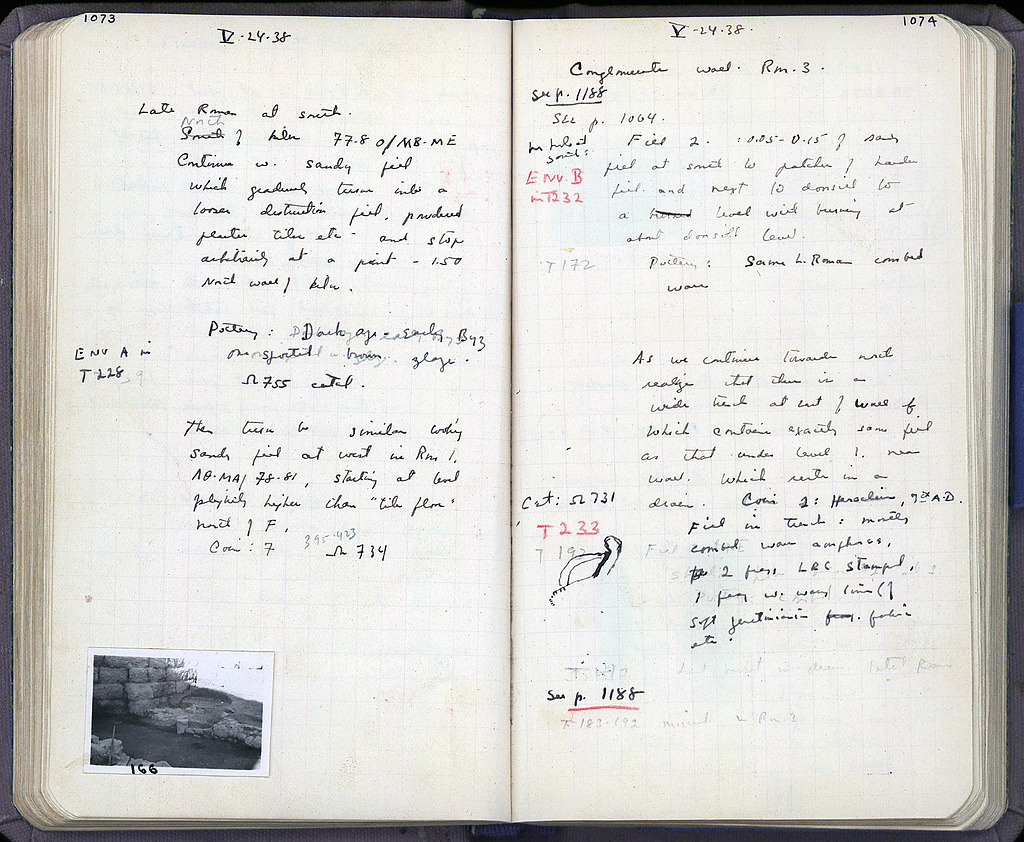 1073
V-24-38
Late Roman at south.
North
South of kiln 77.8 of MB-ME
Continue w. sandy fill
which gradually turns into a
looser destruction fill, produced
plaster tiles etc - and stop
arbitrarily at a point - 1.50
North wall of kiln.
Pottery: Dark age - early Byz
one spotted - brown glaze.
ENV A in
T 228
Ω 755 catal.
Then turn to similar looking
sandy fill at west in Rm 1,
ΛΘ-MA/78-81, starting at level
slightly higher than "tile floor"
north of F.
Coin: 7 395-423 Ω 734
166
1074
V-24-38.
Conglomerate wall. Rm. 3.
See p. 1188
See p. 1064.
Fill 2. : 0.05-0.15 of sandy
fill at south to patches of harder
fill and next to doorsill to
a level with burning at
about doorsill level.
ENV. B
in T232
T 172
Pottery: Some L. Roman combed
ware
As we continue towards north
realize that there is a
wide trench at east of wall
which contains exactly same fill
as that under level 1. near
wall. Which rests in a
drain. Coin 2: Heraclius, 7th A.D.
Cat: Ω 731
T 233
T 192
Fill in trench: mostly
combed ware amphoras,
2 frags LRC stamped,
1 frag w. wavy line
soft fabric
etc.
See p. 1188
T-183-192 Rm 3